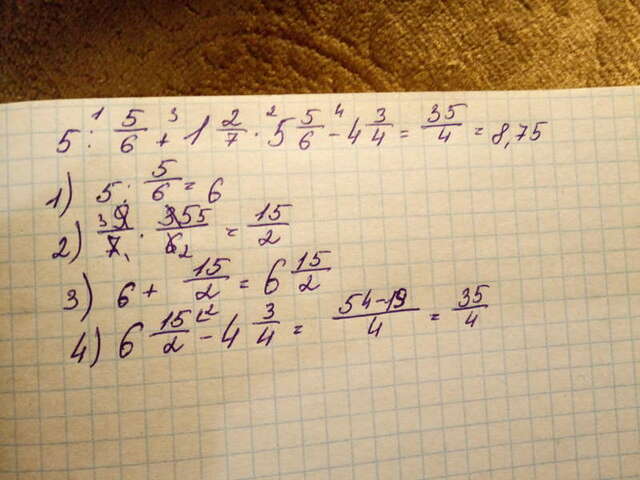 5 : 5/6 + 1 2/7 · 5 5/6 - 4 3/4 = 35/4 = 8,75
1) 5 : 5/6 = 6
2) 9/7 · 35/6 = 15/2
3) 6 + 15/2 = 6 15/2
4) 6 15/2 - 4 3/4 = 54-19/4 = 35/4